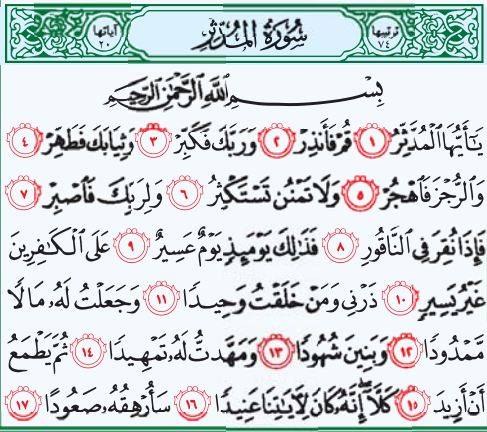 ترتيبها ٧٤ سُورَةُ المُدَّثِّر آياتها ٢٠
بِسْمِ ٱللَّهِ ٱلرَّحْمَٰنِ ٱلرَّحِيمِ
يَٰٓأَيُّهَا ٱلْمُدَّثِّرُ ١ قُمْ فَأَنذِرْ ٢ وَرَبَّكَ فَكَبِّرْ ٣ وَثِيَابَكَ فَطَهِّرْ ٤
وَٱلرُّجْزَ فَٱهْجُرْ ٥ وَلَا تَمْنُن تَسْتَكْثِرُ ٦ وَلِرَبِّكَ فَٱصْبِرْ ٧
فَإِذَا نُقِرَ فِي ٱلنَّاقُورِ ٨ فَذَٰلِكَ يَوْمَئِذٍ يَوْمٌ عَسِيرٌ ٩ عَلَى ٱلْكَٰفِرِينَ
غَيْرُ يَسِيرٍ ١٠ ذَرْنِي وَمَنْ خَلَقْتُ وَحِيدًا ١١ وَجَعَلْتُ لَهُۥ مَالًا
مَّمْدُودًا ١٢ وَبَنِينَ شُهُودًا ١٣ وَمَهَّدتُّ لَهُۥ تَمْهِيدًا ١٤ ثُمَّ يَطْمَعُ
أَنْ أَزِيدَ ١٥ كَلَّآ إِنَّهُۥ كَانَ لِأٓيَٰتِنَا عَنِيدًا ١٦ سَأُرْهِقُهُۥ صَعُودًا ١٧